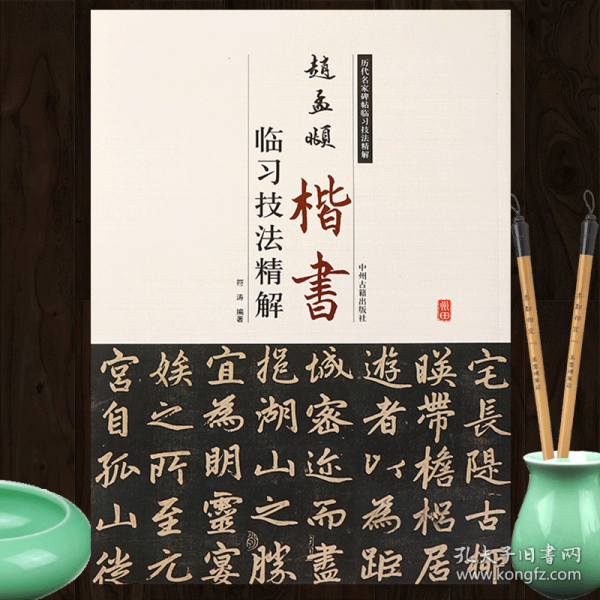 历代名家碑帖临习技法精解
趙孟頫
楷書
临习技法精解
中州古籍出版社
符涛 编著
宅長隄古柳
暎帶檐楹居
遊者以為距
城密迩而盡
挹湖山之勝
宜為明靈宴
娭之所至元
宮自孤山徙
孔夫子旧书网
www.kongfz.com